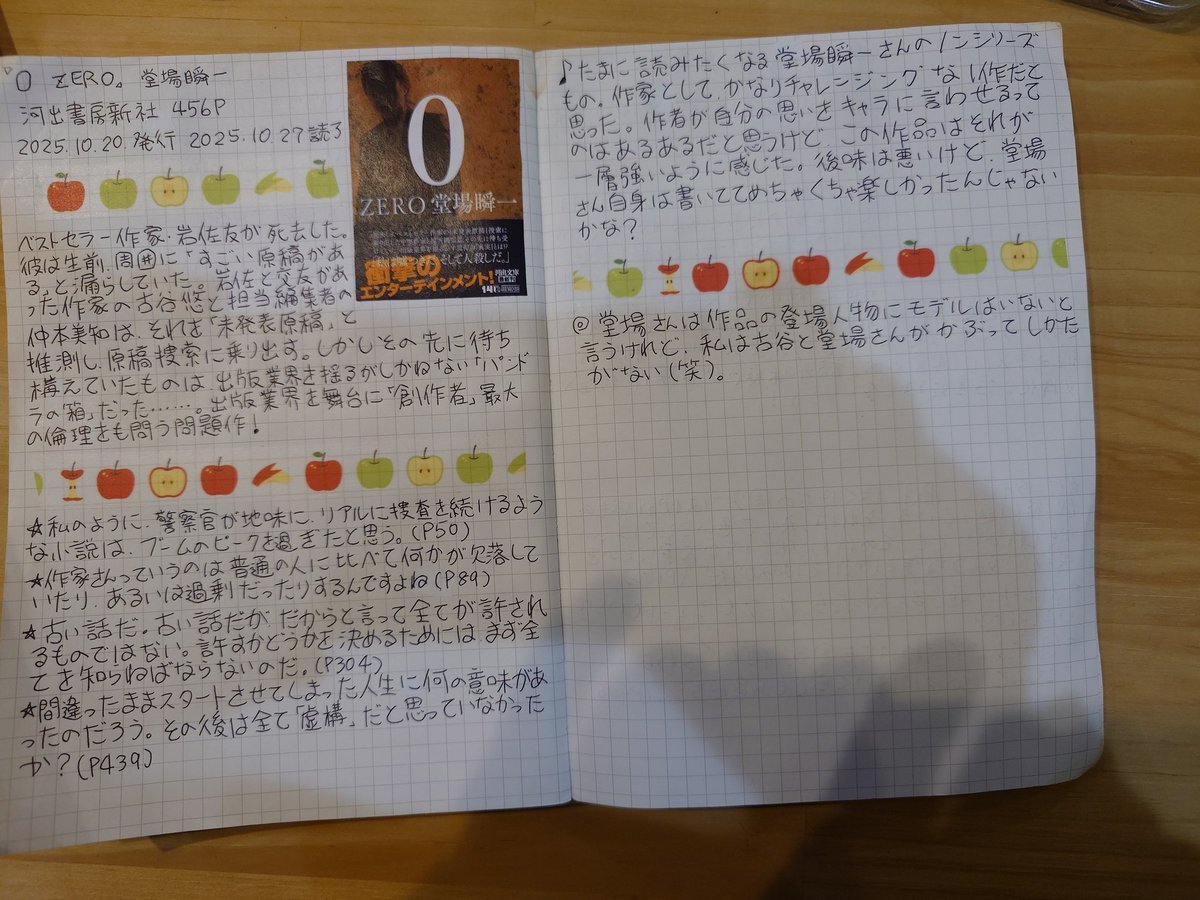 0 ZERO。堂場瞬一
河出書房新社 456P
2025.10.20.発行 2025.10.27読了
0
ZERO 堂場瞬一
そして人殺しだ。」
衝撃の
エンターテインメント!
河出文庫
ベストセラー作家・岩佐友が死去した。
彼は生前、周囲に「すごい原稿があ
る」と漏らしていた。岩佐と交友があ
った作家の古谷悠と担当編集者の
仲本美知は、それを「未発表原稿」と
推測し、原稿捜索に乗り出す。しかしその先に待ち
構えていたものは、出版業界を揺るがしかねない「パンド
ラの箱」だった……。出版業界を舞台に「創作者」最大
の倫理をも問う問題作!
☆私のように、警察官が地味に、リアルに捜査を続けるよう
な小説は、ブームのピークを過ぎたと思う。(P50)
★作家さんっていうのは普通の人に比べて何かが欠落して
いたり、あるいは過剰だったりするんですよね(P89)
★古い話だ。古い話だが、だからと言って全てが許され
るものではない。許すかどうかを決めるためには、まず全
てを知らねばならないのだ。(P304)
★間違ったままスタートさせてしまった人生に何の意味があ
ったのだろう。その後は全て「虚構」だと思っていなかった
か?(P439)
♪たまに読みたくなる堂場瞬一さんのノンシリーズ
もの。作家として、かなりチャレンジングな1作だと
思った。作者が自分の思いをキャラに言わせるって
のはあるあるだと思うけど、この作品はそれが
一層強いように感じた。後味は悪いけど、堂場
さん自身は書いててめちゃくちゃ楽しかったんじゃない
かな?
@堂場さんは作品の登場人物にモデルはいないと
言うけれど、私は古谷と堂場さんがかぶってしかた
がない(笑)。